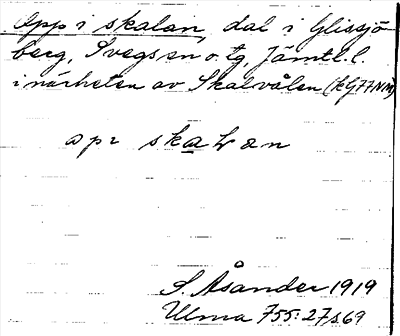 Opp i skalan, dal i Glissjö
berg, Svegs sn o. tg, Jämtl. l.
i närheten av Skalvålen (kG77NM)
apı skaLan
S. Åsander 1919
Ulma 755:27, s 69